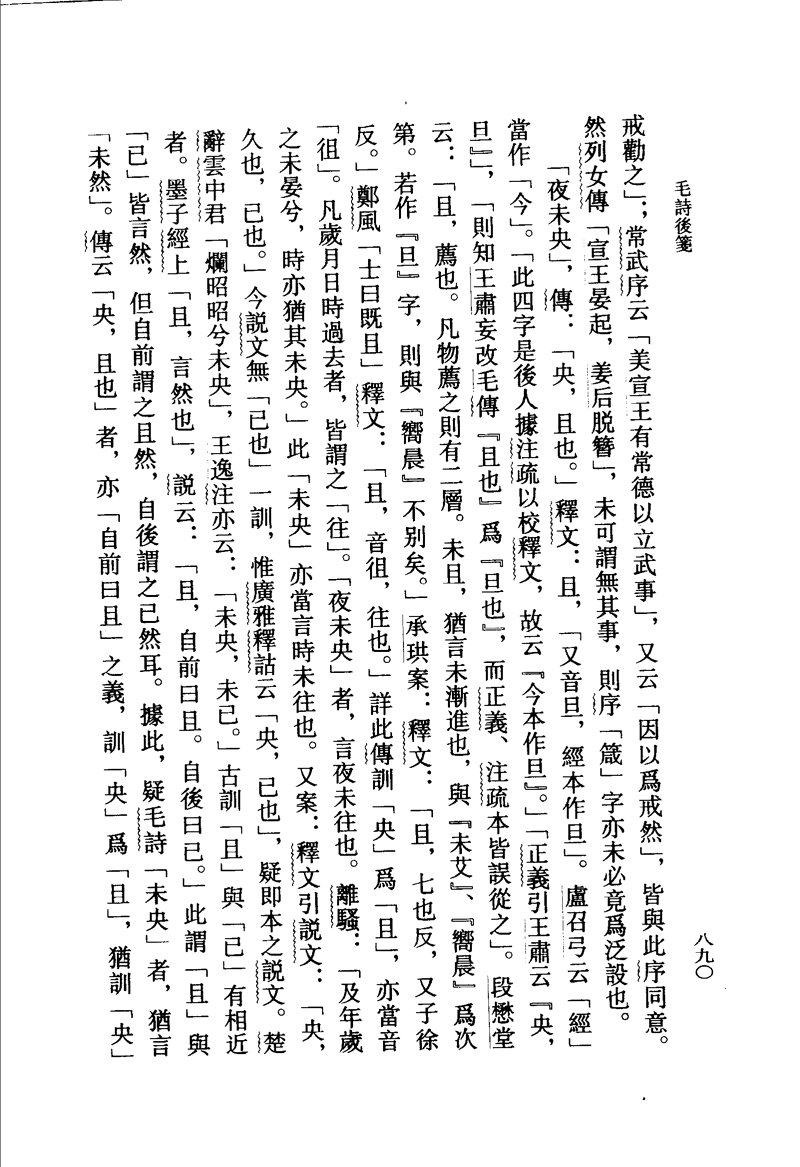 毛詩後箋
八九〇
戒勸之」；常武序云「美宣王有常德以立武事」，又云「因以爲戒然」，皆與此序同意。
然列女傳「宣王晏起，姜后脱簪」，未可謂無其事，則序「箴」字亦未必竟爲泛設也。
「夜未央」，傳：「央，且也。」釋文：且，「又音旦，經本作旦」。盧召弓云「經」
當作「今」。「此四字是後人據注疏以校釋文，故云『今本作旦』。」「正義引王肅云『央，
旦』」，「則知王肅妄改毛傳『且也』爲『旦也』，而正義、注疏本皆誤從之」。段懋堂
云：「且，薦也。凡物薦之則有二層。未且，猶言未漸進也，與『未艾』、『嚮晨』爲次
第。若作『旦』字，則與『嚮晨』不别矣。」承珙案：釋文：「且，七也反，又子徐
反。」鄭風「士曰既且」釋文：「且，音徂，往也。」詳此傳訓「央」爲「且」，亦當音
「徂」。凡歲月日時過去者，皆謂之「往」。「夜未央」者，言夜未往也。離騷：「及年歲
之未晏兮，時亦猶其未央。」此「未央」亦當言時未往也。又案：釋文引説文：「央，
久也，已也。」今説文無「已也」一訓，惟廣雅釋詁云「央，已也」，疑即本之説文。楚
辭雲中君「爛昭昭兮未央」，王逸注亦云：「未央，未已。」古訓「且」與「已」有相近
者。墨子經上「且，言然也」，説云：「且，自前曰且。自後曰已。」此謂「且」與
「已」皆言然，但自前謂之且然，自後謂之已然耳。據此，疑毛詩「未央」者，猶言
「未然」。傳云「央，且也」者，亦「自前曰且」之義，訓「央」爲「且」，猶訓「央」